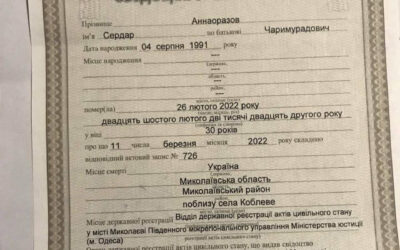 Прізвище Аннаоразов
ім'я Сердар по батькові Чаримурадович
Дата народження 04 серпня 1991 року
Місце народження ---
---
---
помер(ла) 26 лютого 2022 року
двадцять шостого лютого дві тисячі двадцять другого року
у віці 30 років
про що 11 числа березня місяця 2022 року складено
відповідний актовий запис № 726
Місце смерті Україна
Миколаївська область
Миколаївський район
поблизу села Коблеве
Місце державної реєстрації Відділ державної реєстрації актів цивільного стану
у місті Миколаєві Південного міжрегіонального управління Міністерства юстиції
(м. Одеса)